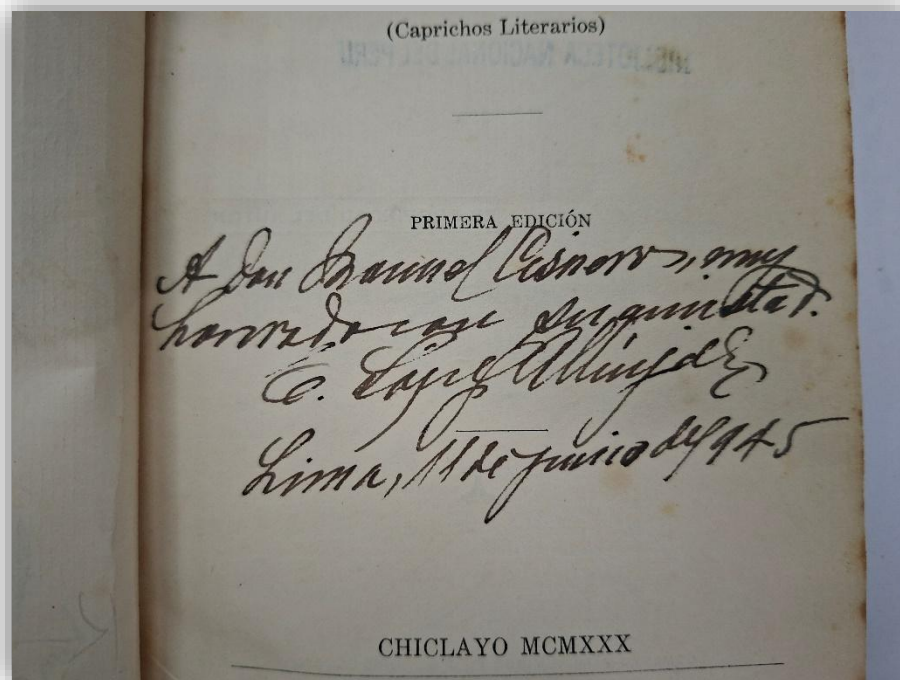 (Caprichos Literarios)
BIBLIOTECA NACIONAL DEL PERU
PRIMERA EDICIÓN
A Don Manuel Cisneros, muy
honrado con su amistad.
E. López Albújar
Lima, 11 de junio de 1945
CHICLAYO MCMXXX